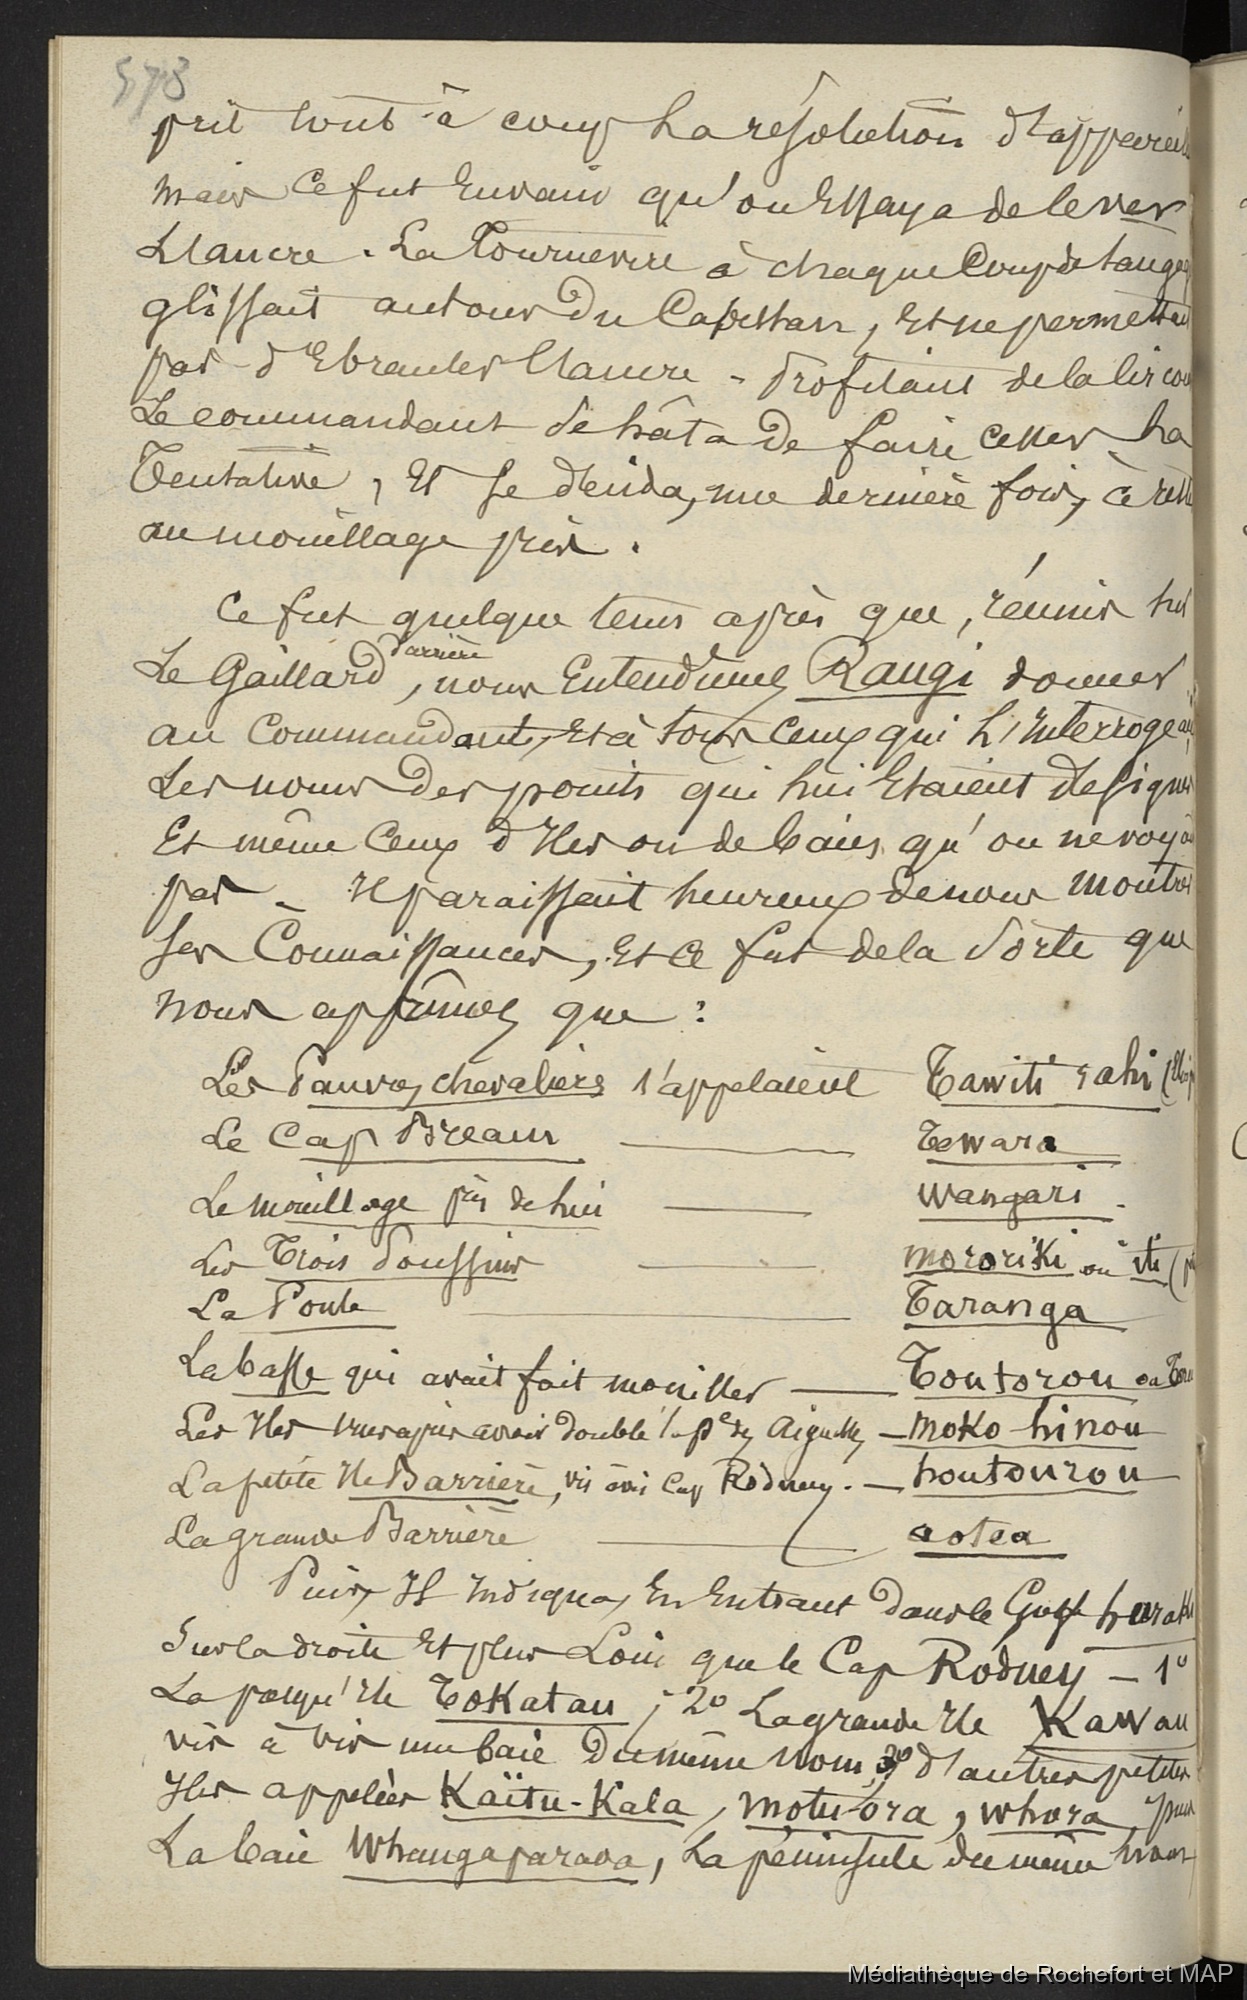 578
prit tout à coup la résolution d'appareill
mais ce fut envain qu'on essaya de lever
L'ancre. La Tournevire à chaque coup de tangag
glissait autour du Cabestan, et ne permettait
pas d'Ebranler l'ancre - Profitant de la circon
Le commandant se hâta de faire cesser la
Tentative, et se décida, une dernière fois, à reste
au mouillage pris.
Ce fut quelque tems après que, réunis sur
Le Gaillard d'arrière, nous Entendîmes Rangi donner
au Commandant, et à tous ceux qui l'Interrogeai
Les noms des points qui lui Etaient désignés
Et même Ceux d'Iles ou de baies qu'on ne voya
pas - Il paraissait heureux de nous montrer
ses Connaissances, et ce fut de la sorte que
nous apprîmes que :
Les Pauvres chevaliers s'appelaient Tawiti rahi
Le Cap Bream Tewara
Le mouillage près de lui Wangari.
Les Trois Poussins mororiki ou iti
La Poule Taranga
La basse qui avait fait mouiller Toutorou ou
Les Iles vues après avoir doublé la pte des Aiguilles moko hinou
La petite Ile Barrière, vis àvis Cap Rodney. - houtourou
La grande Barrière aotea
Puis, Il Indiqua, En Entrant dans le Golf hurak
Sur la droite et plus Loin que le Cap Rodney - 1°
La presqu'Ile Tokatau ; 2° La grande Ile Kawau
vis à vis une baie du même nom ; 3° d'autres petites
Iles appelées Kaïtu-Kala, motu ora, whora, puis
La baie Whangaparaoa, La péninsule du même nom
Médiathèque de Rochefort et MAP